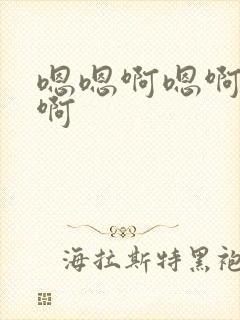 嗯嗯啊嗯啊
啊
海拉斯特黑袍